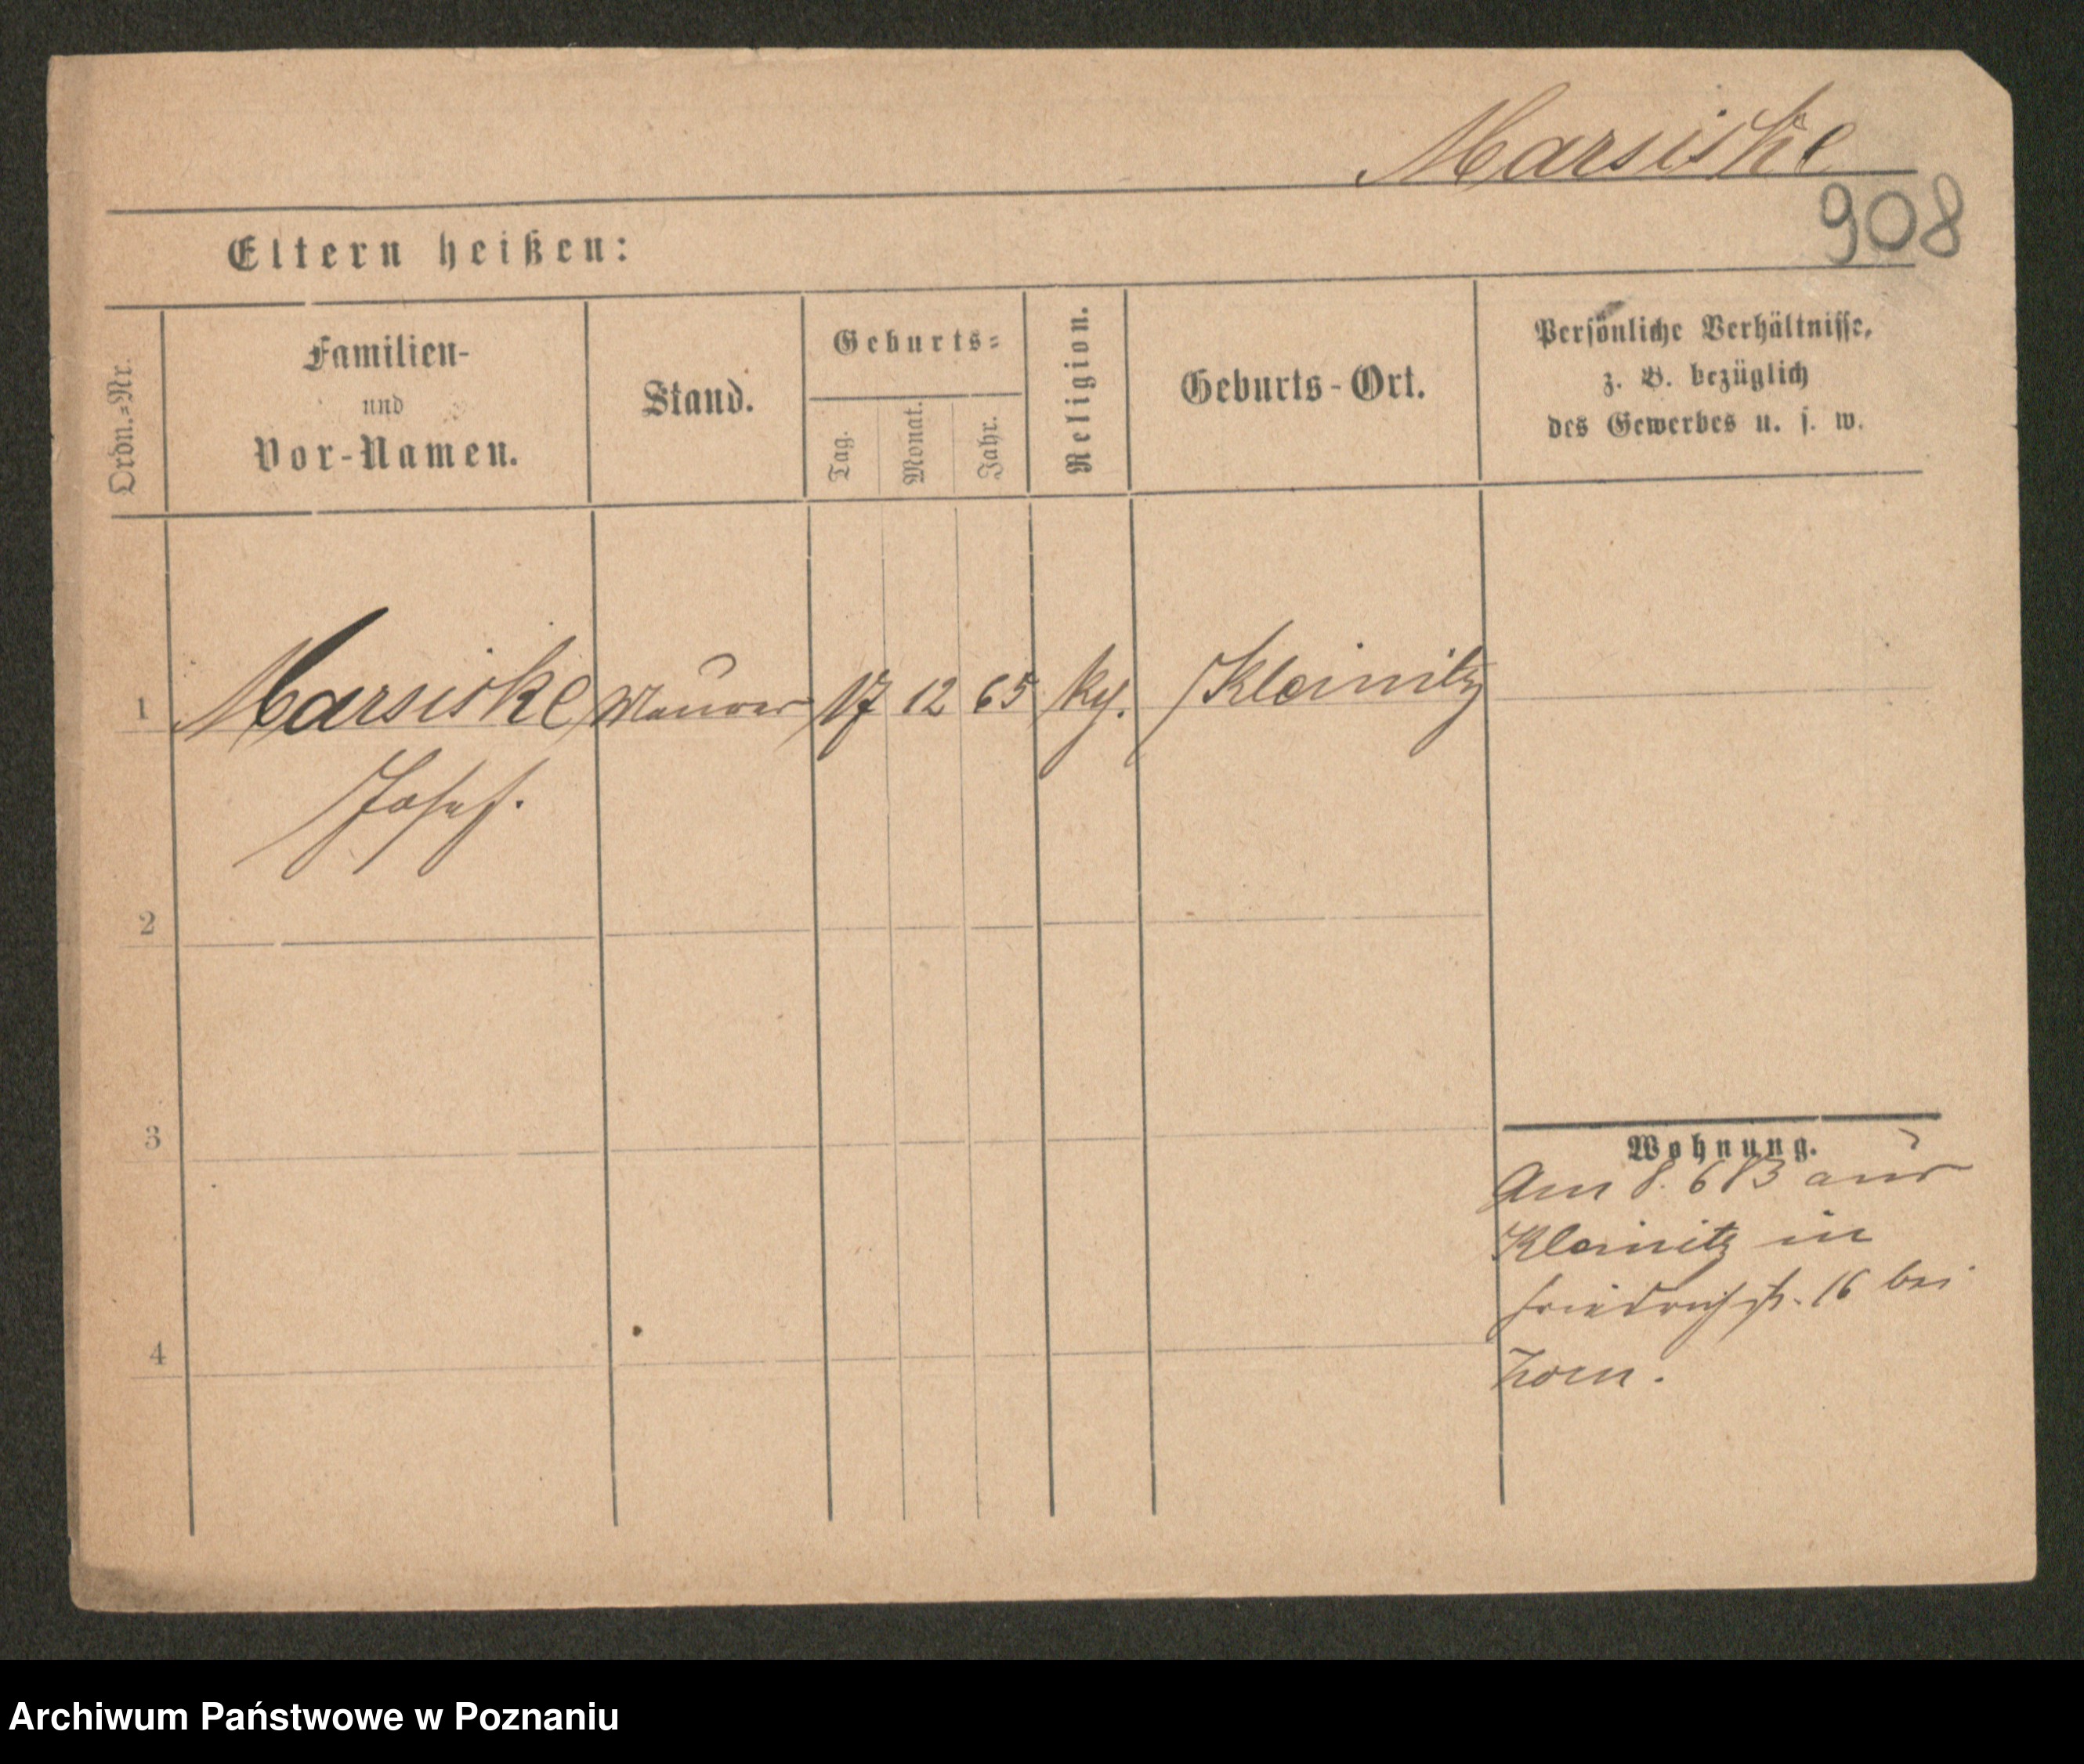 Marsiske
908
Eltern heißen:
Ordn.=Nr.
Familien-
und
Vor-Namen.
Stand.
Geburts=
Tag.
Monat.
Jahr.
Religion.
Geburts-Ort.
Persönliche Verhältnisse,
z. B. bezüglich
des Gewerbes u. s. w.
1 Marsiske Maurer 17 12 65 Kleinitz
Josef.
2
3
4
Wohnung.
Am 8. 6 83 aus
Kleinitz in
Friedrichst. 16 bei
Archiwum Państwowe w Poznaniu